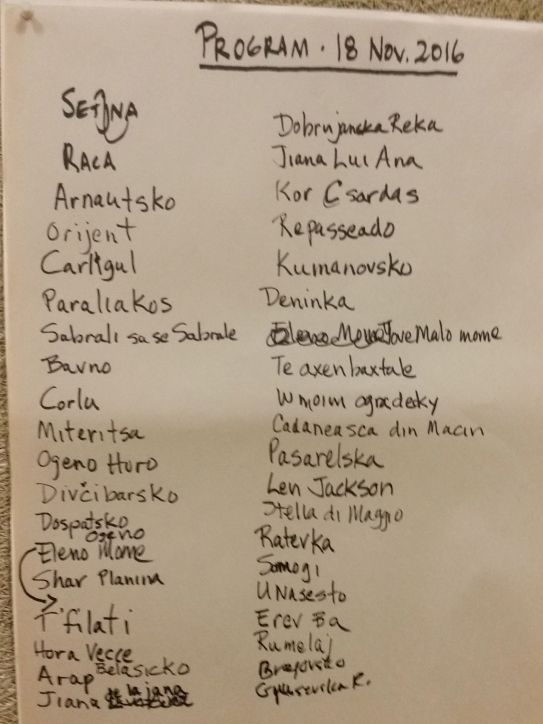 PROGRAM · 18 NOV. 2016
SETNA
RACA
Arnautsko
Orijent
Carligul
Paraliakos
Sabrali sa se Sabrale
Bavno
Corlu
Miteritsa
Ogeno Horo
Divčibarsko
Dospatsko
Ogeno
Eleno Mome
Shar Planina
T'filati
Hora Vecce
Arap Belasicko
Jiana de la jana
Dobrujanska Reka
Jiana Lui Ana
Kor Csardas
Repasseado
Kumanovsko
Deninka
Eleno Mome Jove Malo mome
Te axen baxtale
W moim ogradecky
Cadaneasca din Macin
Pasarelska
Len Jackson
Stella di Maggio
Ratevka
Somogi
UNasesto
Erev Ba
Rumelaj
R.